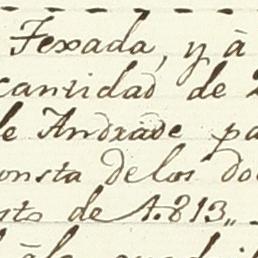 Texada, y à
cantidad de
de Andrade pa
onsta delos do
sto de 1.813,,